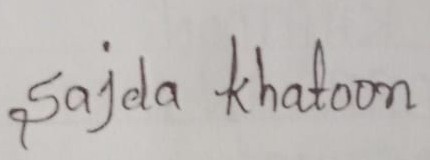 Sajda khatoon